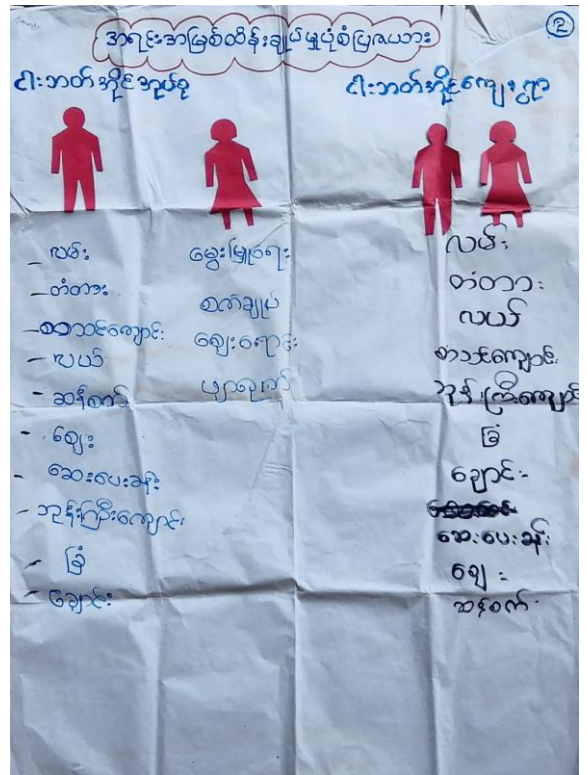 အရင်းအမြစ်ထိန်းချုပ်မှုပုံစံပြဇယား
၂
ငါးဘတ်အိုင်အုပ်စု
ငါးဘတ်အိုင်ကျေးရွာ
- လမ်း
- တံတား
- စာသင်ကျောင်း
- လယ်
- ဆန်စက်
- ဈေး
- ဆေးပေးခန်း
- ဘုန်းကြီးကျောင်း
- ခြံ
- ချောင်း
မွေးမြူရေး
စက်ချုပ်
ဈေးရောင်း
ဖျာလုပ်
လမ်း
တံတား
လယ်
စာသင်ကျောင်း
ဘုန်းကြီးကျောင်း
ခြံ
ချောင်း
ဆေးပေးခန်း
ဈေး
ဆန်စက်